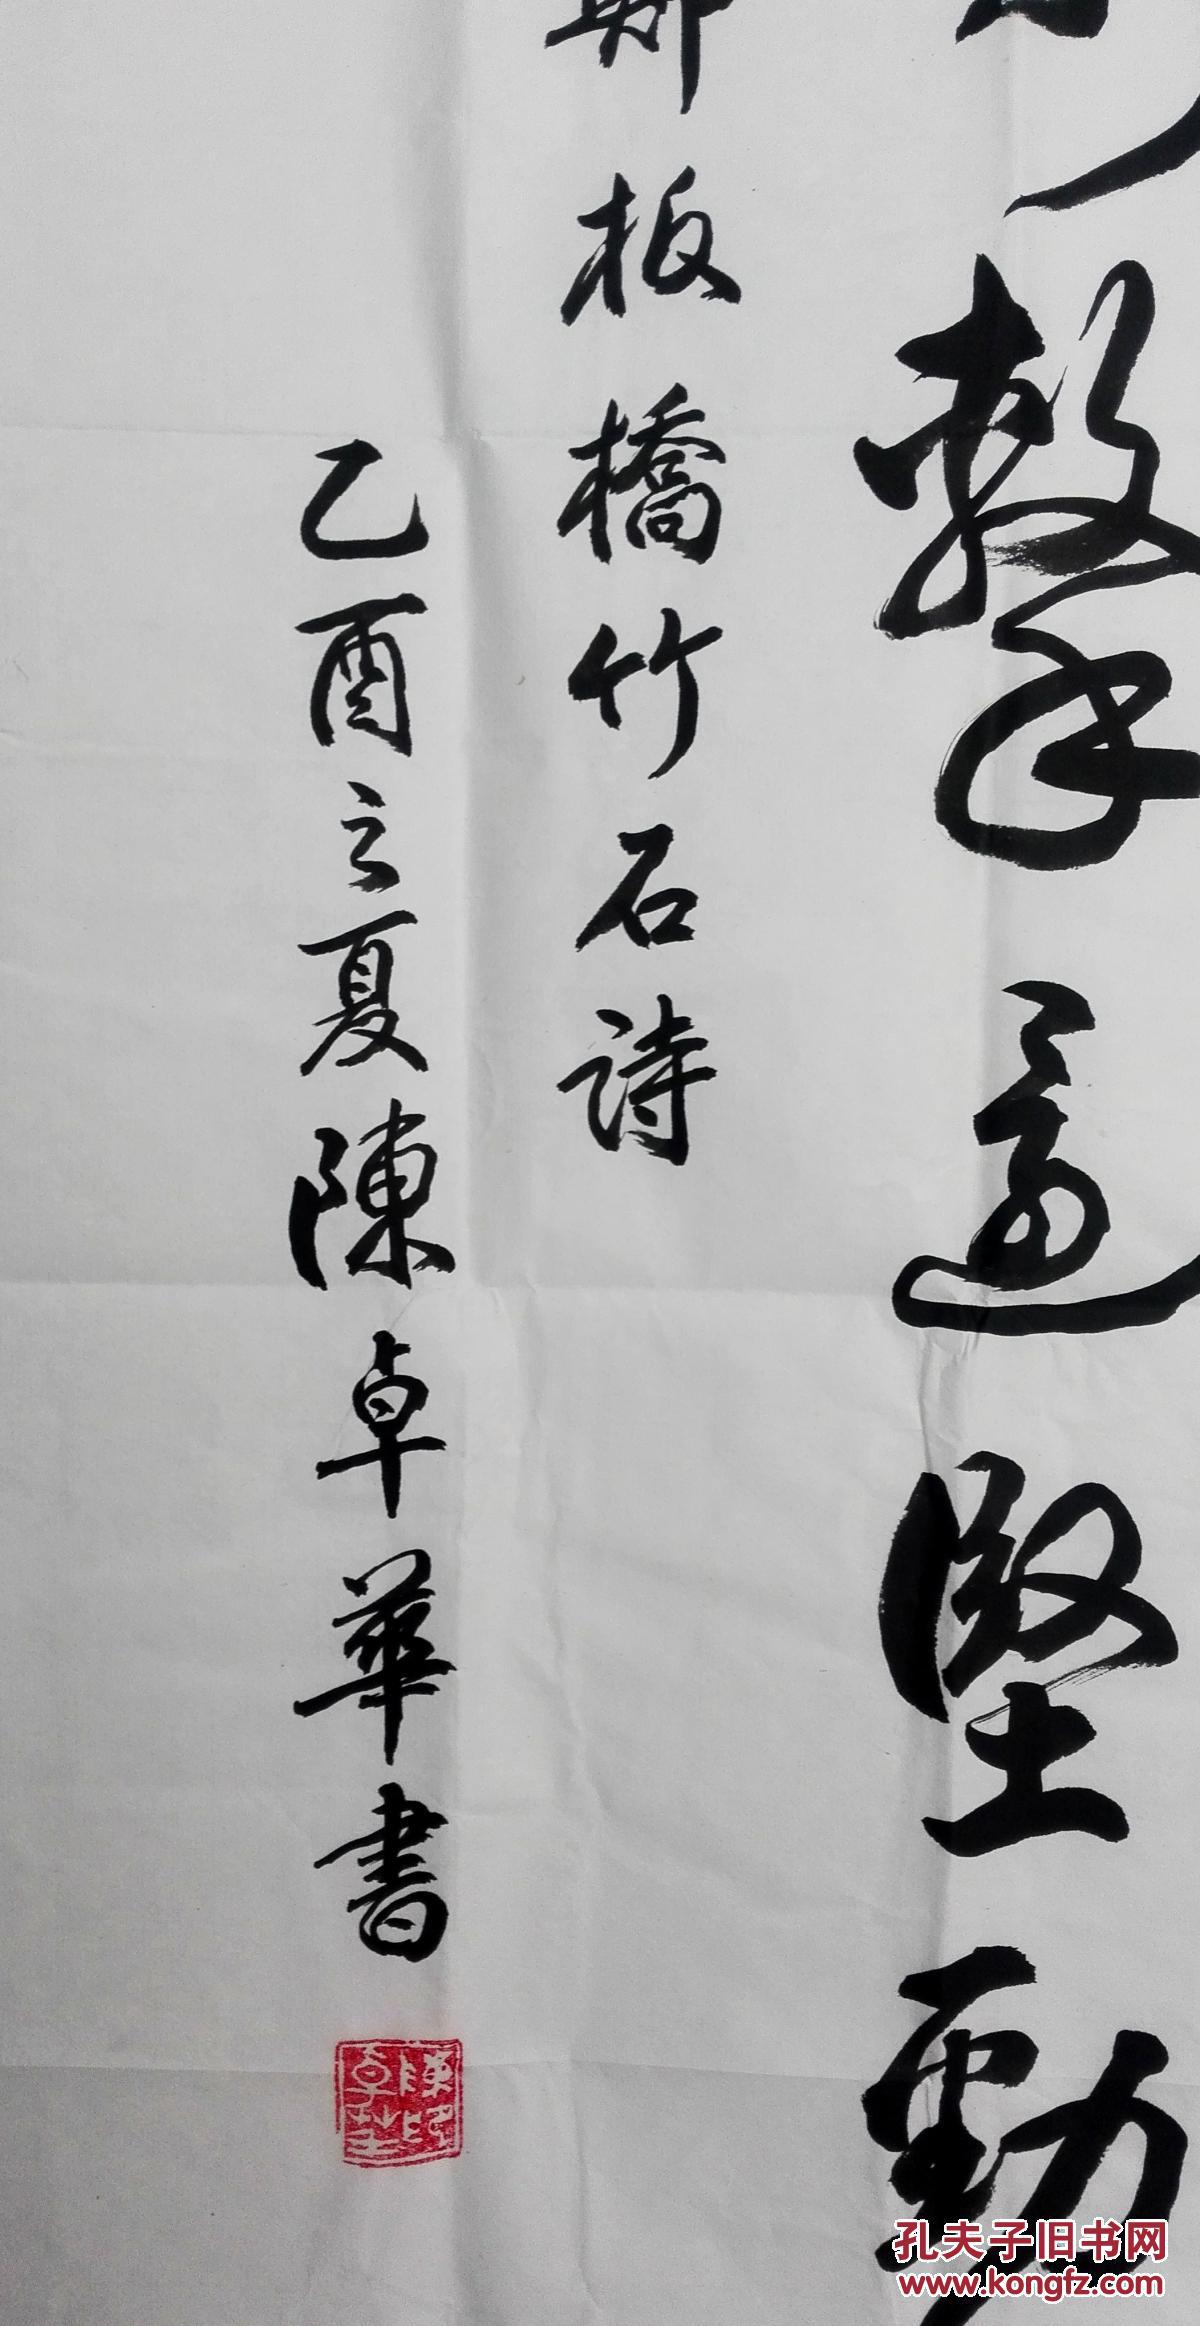 擊還堅勁
鄭板橋竹石詩
乙酉之夏陳卓華書
孔夫子旧书网
www.kongfz.com